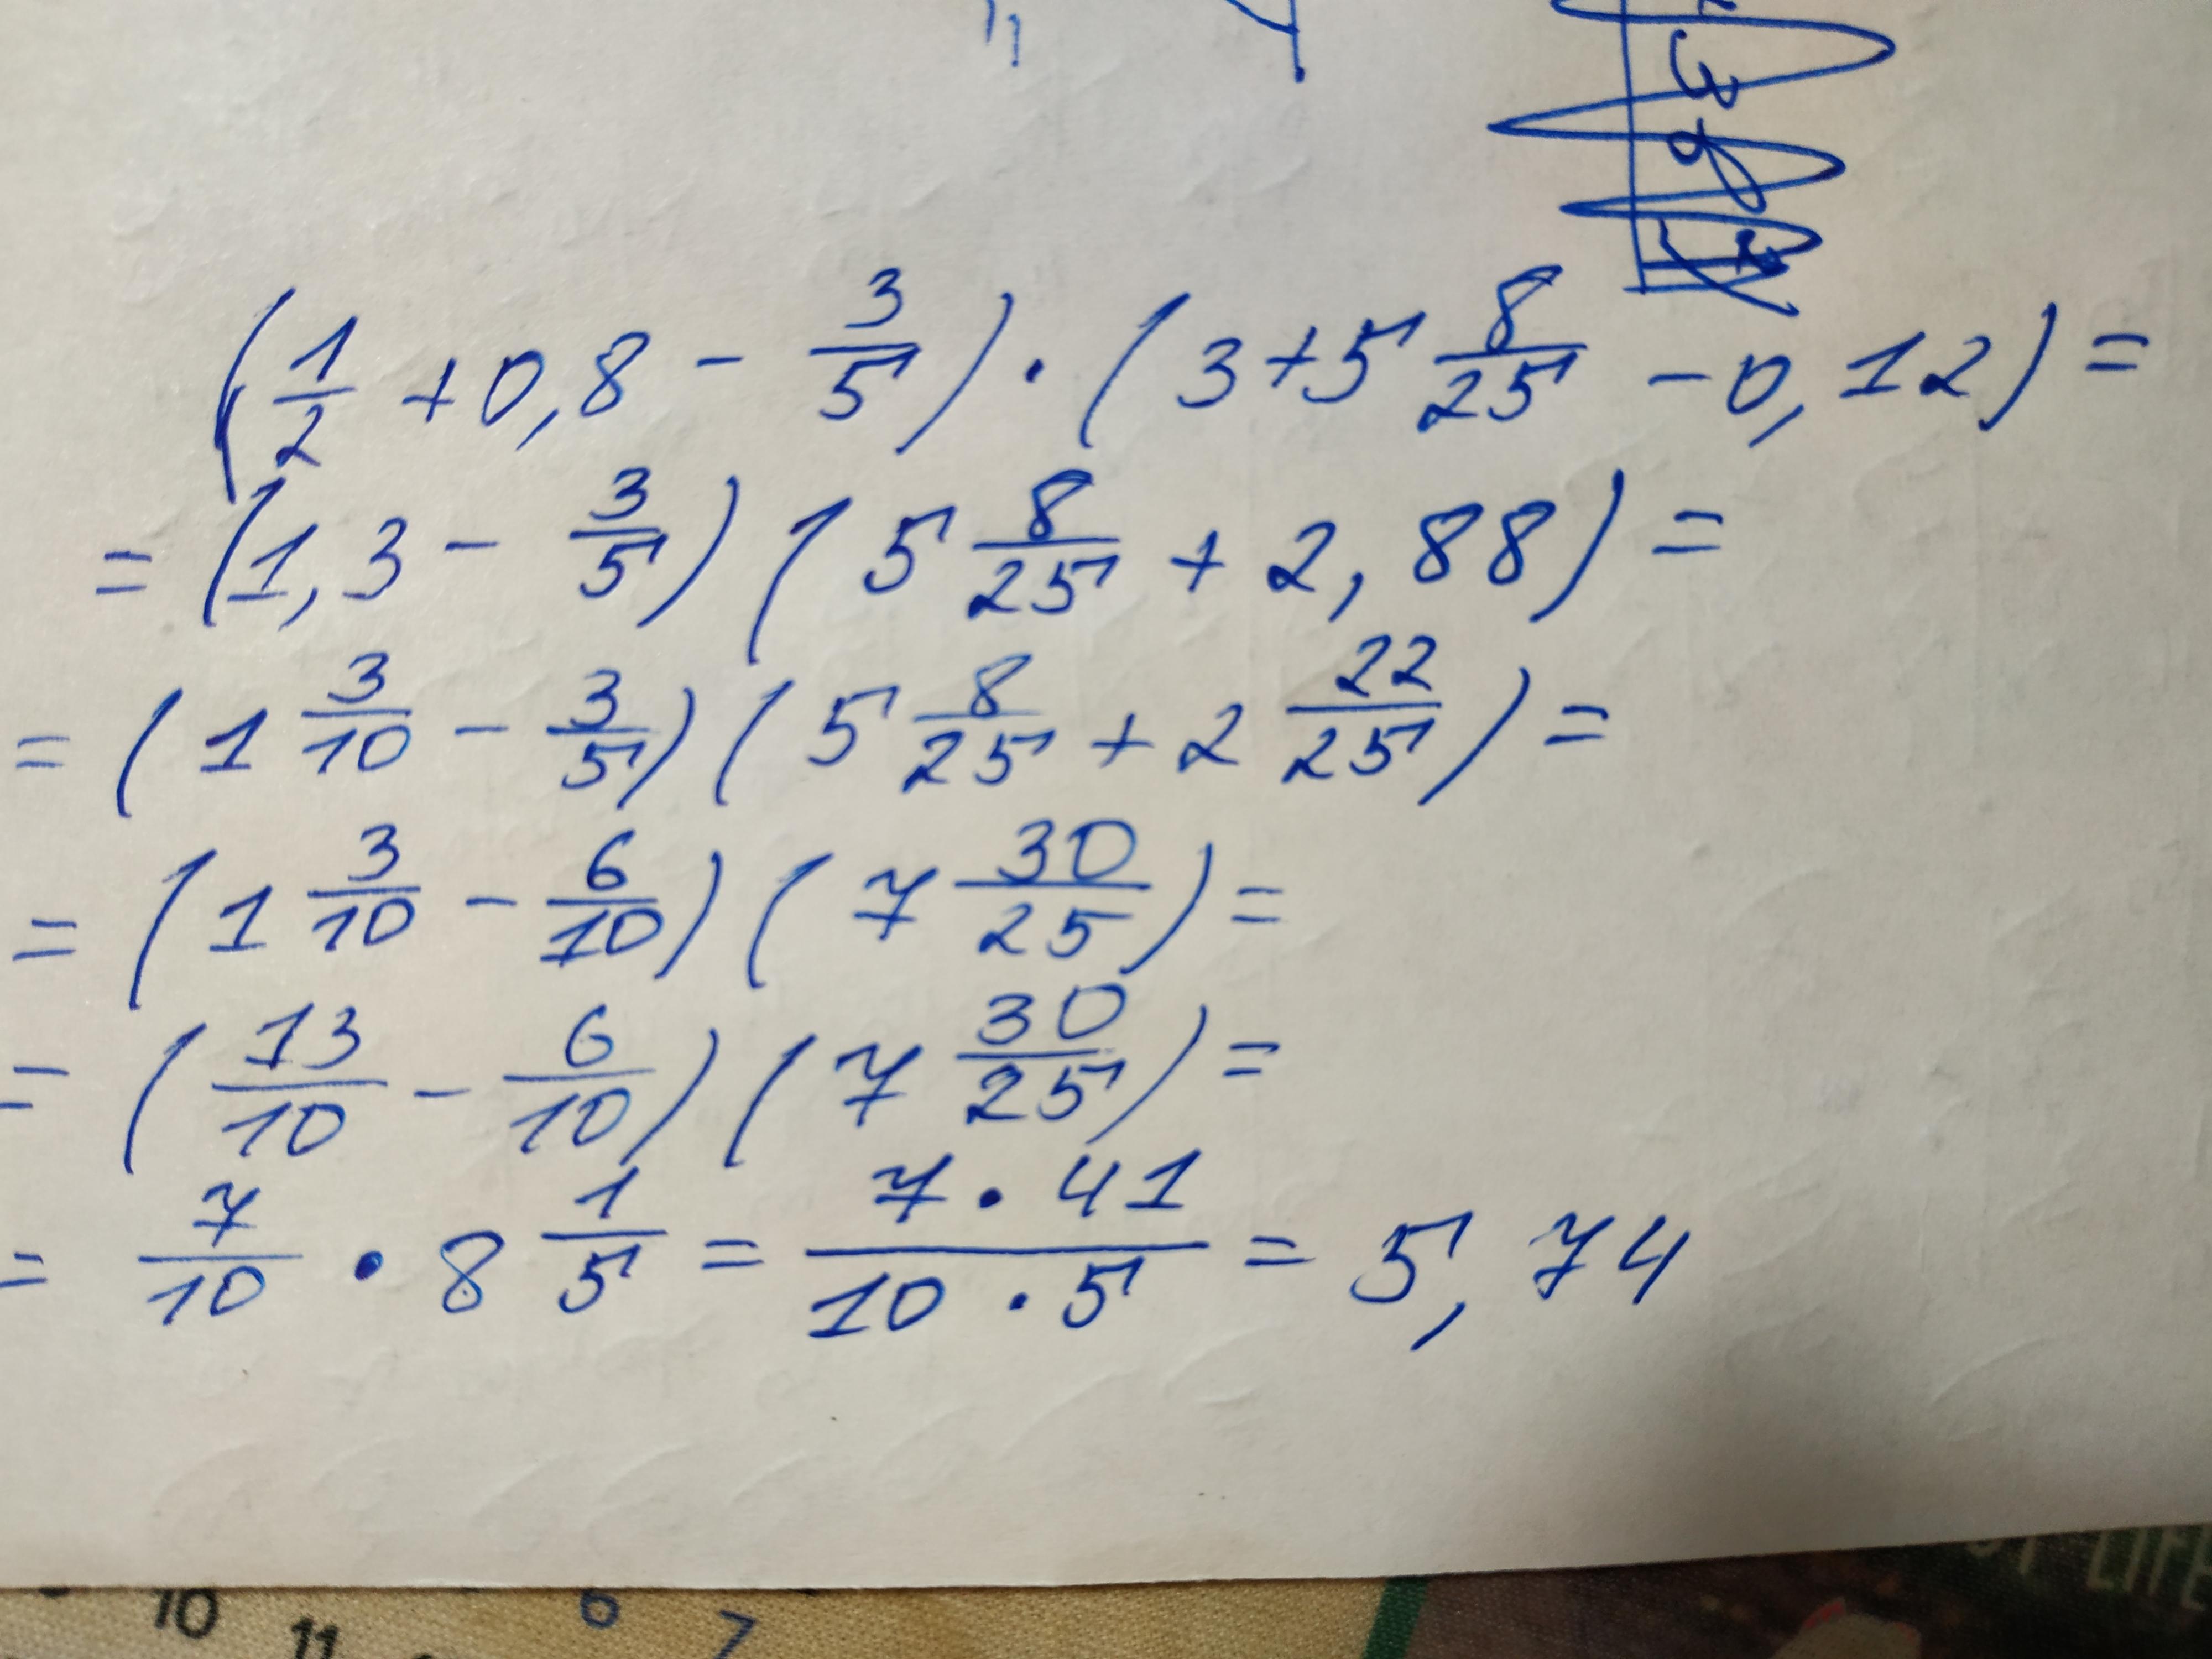 (1/2 + 0,8 - 3/5) · (3 + 5 8/25 - 0,12) =
= (1,3 - 3/5) (5 8/25 + 2,88) =
= (1 3/10 - 3/5) (5 8/25 + 2 22/25) =
= (1 3/10 - 6/10) (7 30/25) =
= (13/10 - 6/10) (7 30/25) =
= 7/10 · 8 1/5 = 7 · 41/10 · 5 = 5,74
LIFE
10
11
6
7